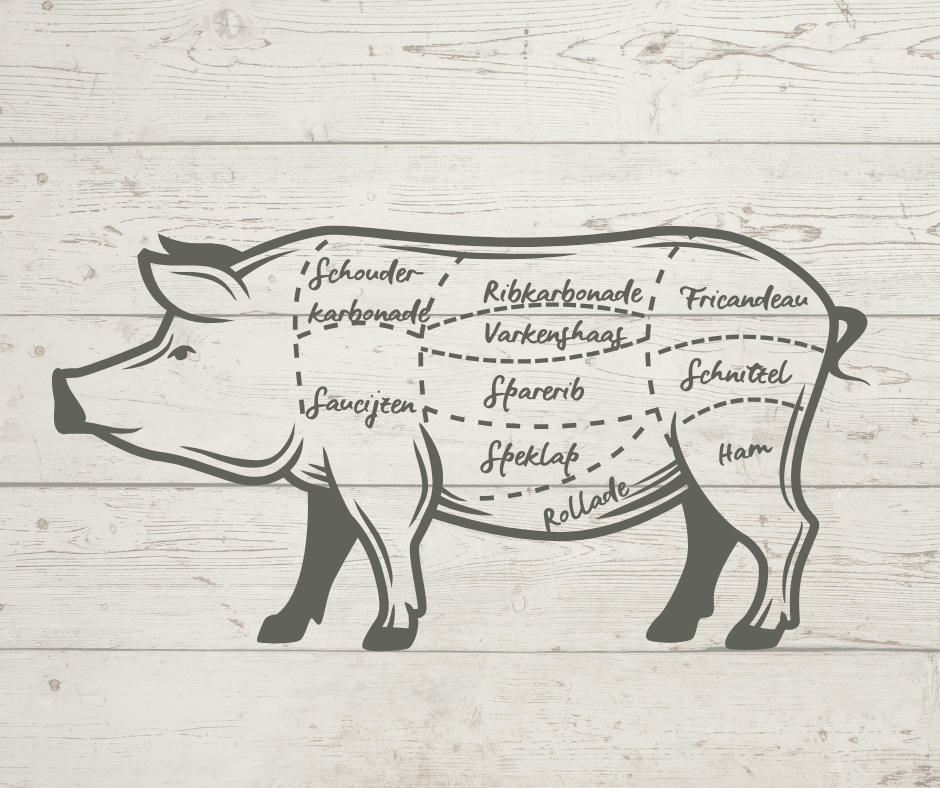 Schouder-
karbonade
Saucijzen
Ribkarbonade
Varkenshaas
Sparerib
Speklap
Rollade
Fricandeau
Schnitzel
Ham